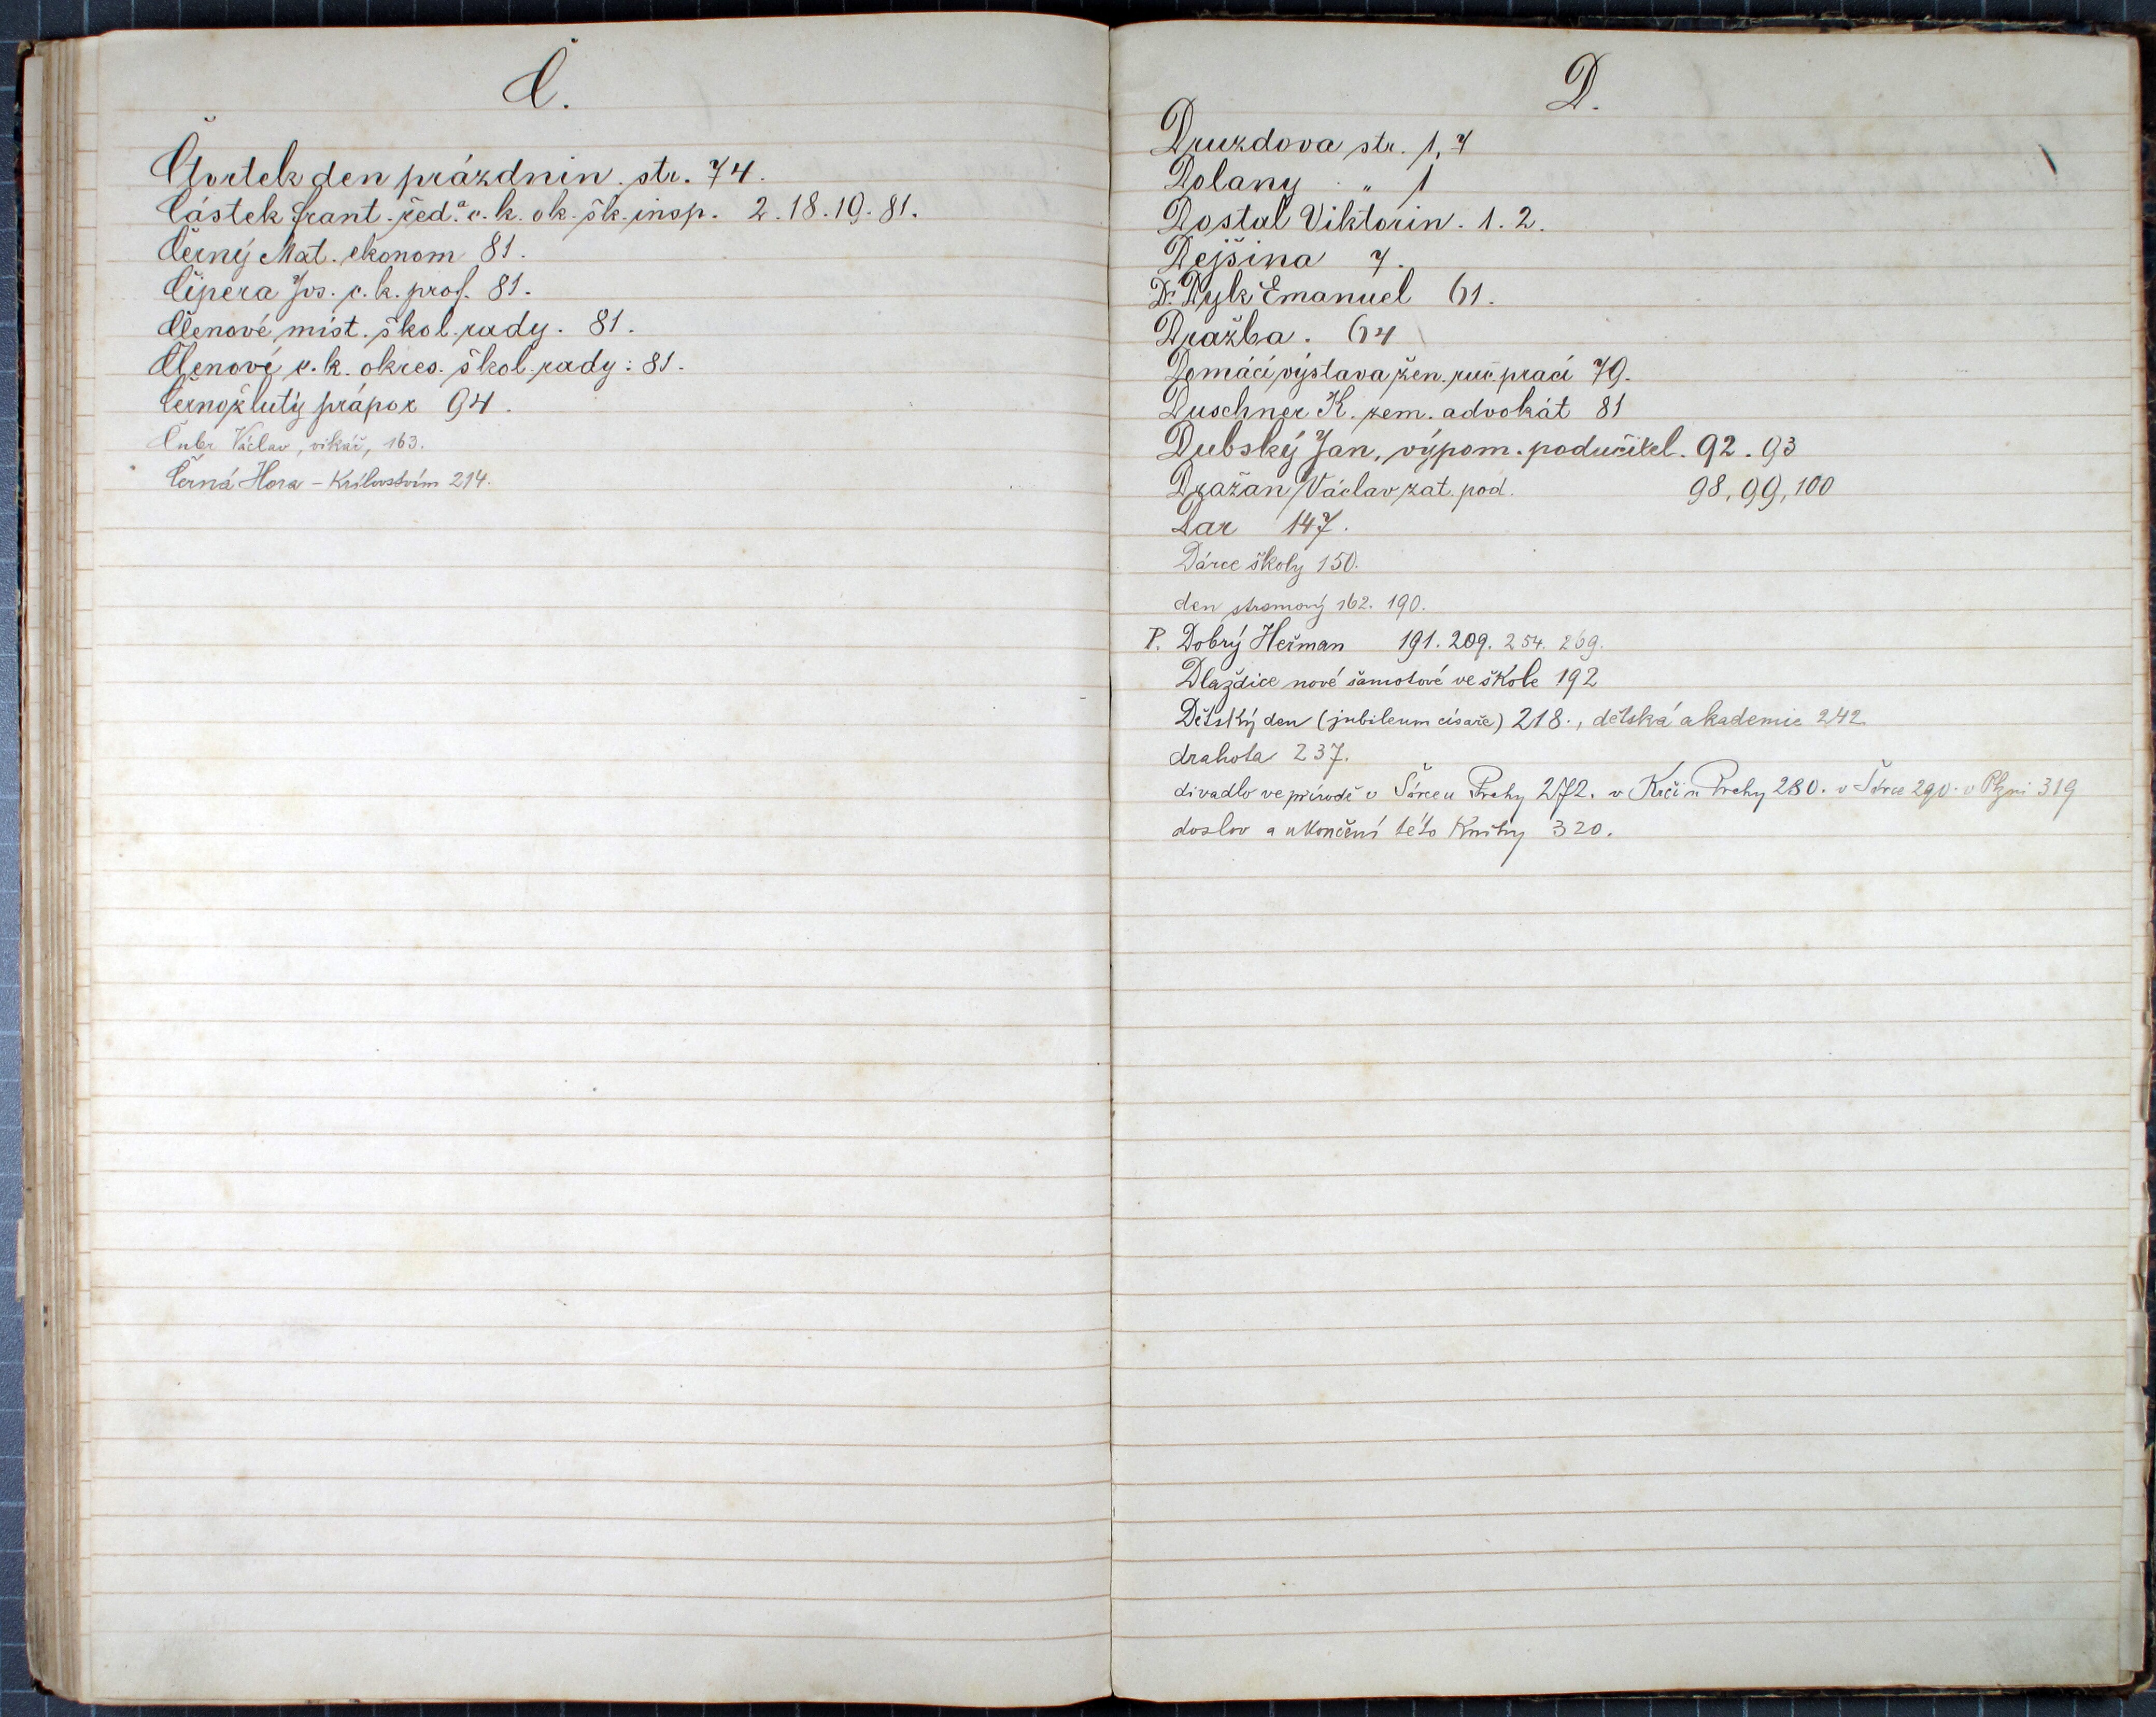 Č.
Čtvrtek den prázdnin. str. 74.
Částek Frant. řed. a c. k. ok. šk. insp. 2. 18. 19. 81.
Černý Mat. ekonom 81.
Čipera Jos. c. k. prof. 81.
Členové míst. škol. rady. 81.
Členové c. k. okres. škol. rady: 81.
Černožlutý prápor 94.
Čubr Václav, vikář, 163.
Černá Hora - Královstvím 214.
D.
Druzdova str. 1, 7
Dolany " 1
Dostal Viktorin. 1. 2.
Dejšina 7.
Dr. Dyk Emanuel 61.
Dražba. 64
Domácí výstava žen. ruč. prací 79.
Duschner K. zem. advokát 81
Dubský Jan, výpom. podučitel. 92. 93
Dražan Václav zat. pod. 98, 99, 100
Dar 147.
Dárce školy 150.
den stromový 162. 190.
P. Dobrý Heřman 191. 209. 254. 269.
Dlaždice nové šamotové ve škole 192
Dětský den (jubileum císaře) 218., dětská akademie 242
drahota 237.
divadlo ve přírodě v Šárce u Prahy 272. v Krči u Prahy 280. v Šárce 290. v Plzni 319
doslov a ukončení této knihy 320.